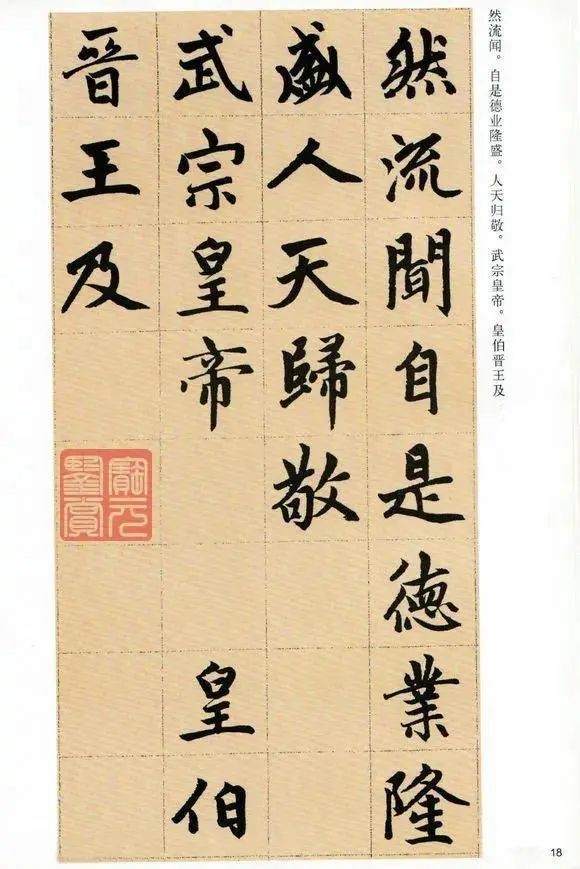 然流闻。自是德业隆盛。人天归敬。武宗皇帝。皇伯晋王及
然流聞自是德業隆
盛人天歸敬
武宗皇帝 皇伯
晉王及
18